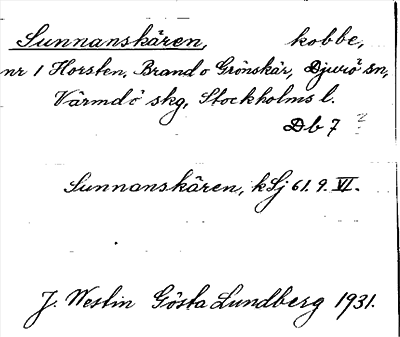 Sunnanskären, kobbe,
nr 1 Horsten, Brand o Grönskär, Djurö sn,
Värmdö skg, Stockholms l.
Db 7 ?
Sunnanskären, k Sj 61. 9. VI.
J. Westin Gösta Lundberg 1931.